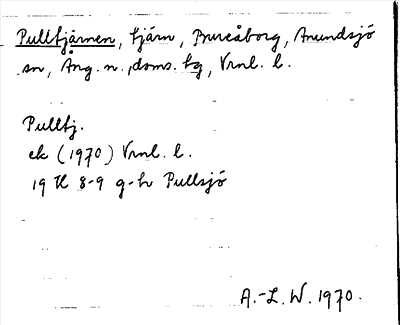 Pulltjärnen, tjärn, Bureåborg, Anundsjö
sn, Ång. n., doms. tg, Vrnl. l.
Pulltj.
ek (1970) Vrnl. l.
19 H 8-9 g-h Pullsjö
A.-L. W. 1970.